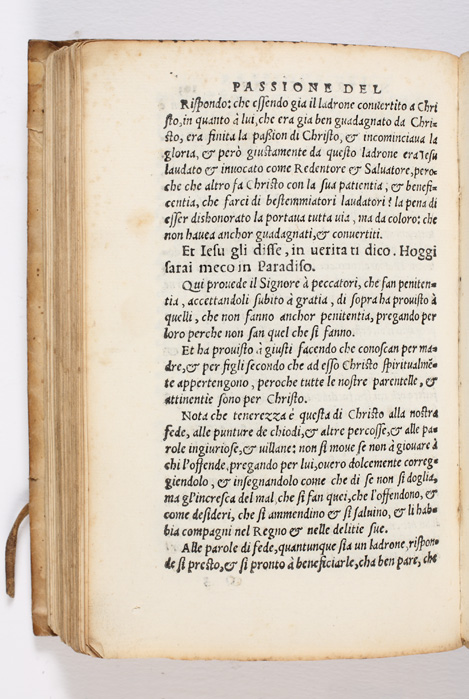 PASSIONE DEL
Rispondo: che essendo gia il ladrone conuertito a Chri
sto, in quanto à lui, che era gia ben guadagnato da Chri-
sto, era finita la passion di Christo, & incominciaua la
gloria, & però giustamente da questo ladrone era Iesu
laudato & inuocato come Redentore & Saluatore, pero-
che che altro fa Christo con la sua patientia, & benefi-
centia, che farci di bestemmiatori laudatori? la pena di
esser dishonorato la portaua tutta uia, ma da coloro: che
non hauea anchor guadagnati, & conuertiti.
Et Iesu gli disse, in uerita ti dico. Hoggi
sarai meco in Paradiso.
Qui prouede il Signore à peccatori, che fan peniten-
tia, accettandoli subito à gratia, di sopra ha prouisto à
quelli, che non fanno anchor penitentia, pregando per
loro perche non san quel che si fanno.
Et ha prouisto à giusti facendo che conoscan per ma-
dre, & per figli secondo che ad esso Christo spiritualmē-
te appertengono, peroche tutte le nostre parentelle, &
attinentie sono per Christo.
Nota che tenerezza é questa di Christo alla nostra
fede, alle punture de chiodi, & altre percosse, & alle pa-
role ingiuriose, & uillane: non si moue se non à giouare à
chi l'offende, pregando per lui, ouero dolcemente correg-
giendolo, & insegnandolo come che di se non si doglia,
ma gl'incresca del mal, che si fan quei, che l'offendono, &
come desideri, che si ammendino & si saluino, & li hab-
bia compagni nel Regno & nelle delitie sue.
Alle parole di fede, quantunque sia un ladrone, rispon-
de si presto, & si pronto à beneficiarle, cha ben pare, che